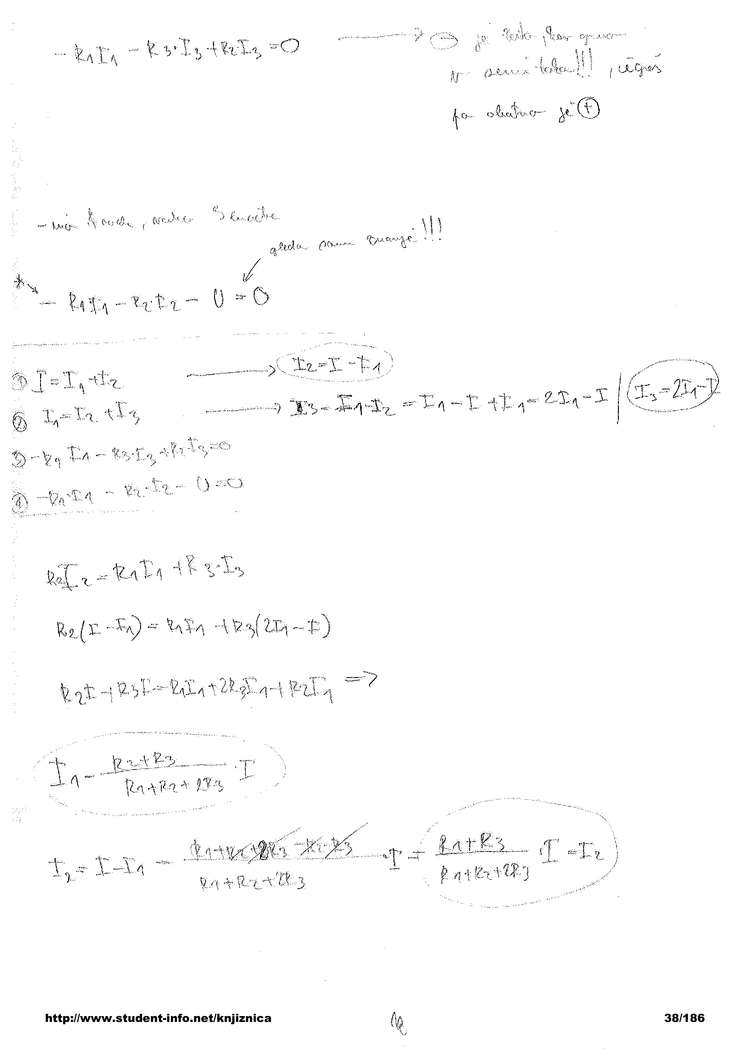 - R1I1 - R3·I3 + R2·I3 = 0 → ⊖ je
v !!!,
pa obratno je ⊕
-
!!!
* - R1·I1 - R2·I2 - U = 0
① I = I1 + I2 → I2 = I - I1
② I1 = I2 + I3 → I3 = I1 - I2 = I1 - I + I1 = 2I1 - I | I3 = 2I1 - I
③ - R1 I1 - R3·I3 + R2·I3 = 0
④ - R1·I1 - R2·I2 - U = 0
R2I2 = R1I1 + R3·I3
R2(I - I1) = R1I1 + R3(2I1 - I)
R2I + R3I = R1I1 + 2R3I1 + R2I1 =>
I1 = R2+R3 / R1+R2+2R3 · I
I2 = I - I1 = R1+R2+2R3 - R2 - R3 / R1+R2+2R3 · I = R1+R3 / R1+R2+2R3 · I = I2
http://www.student-info.net/knjiznica
38/186